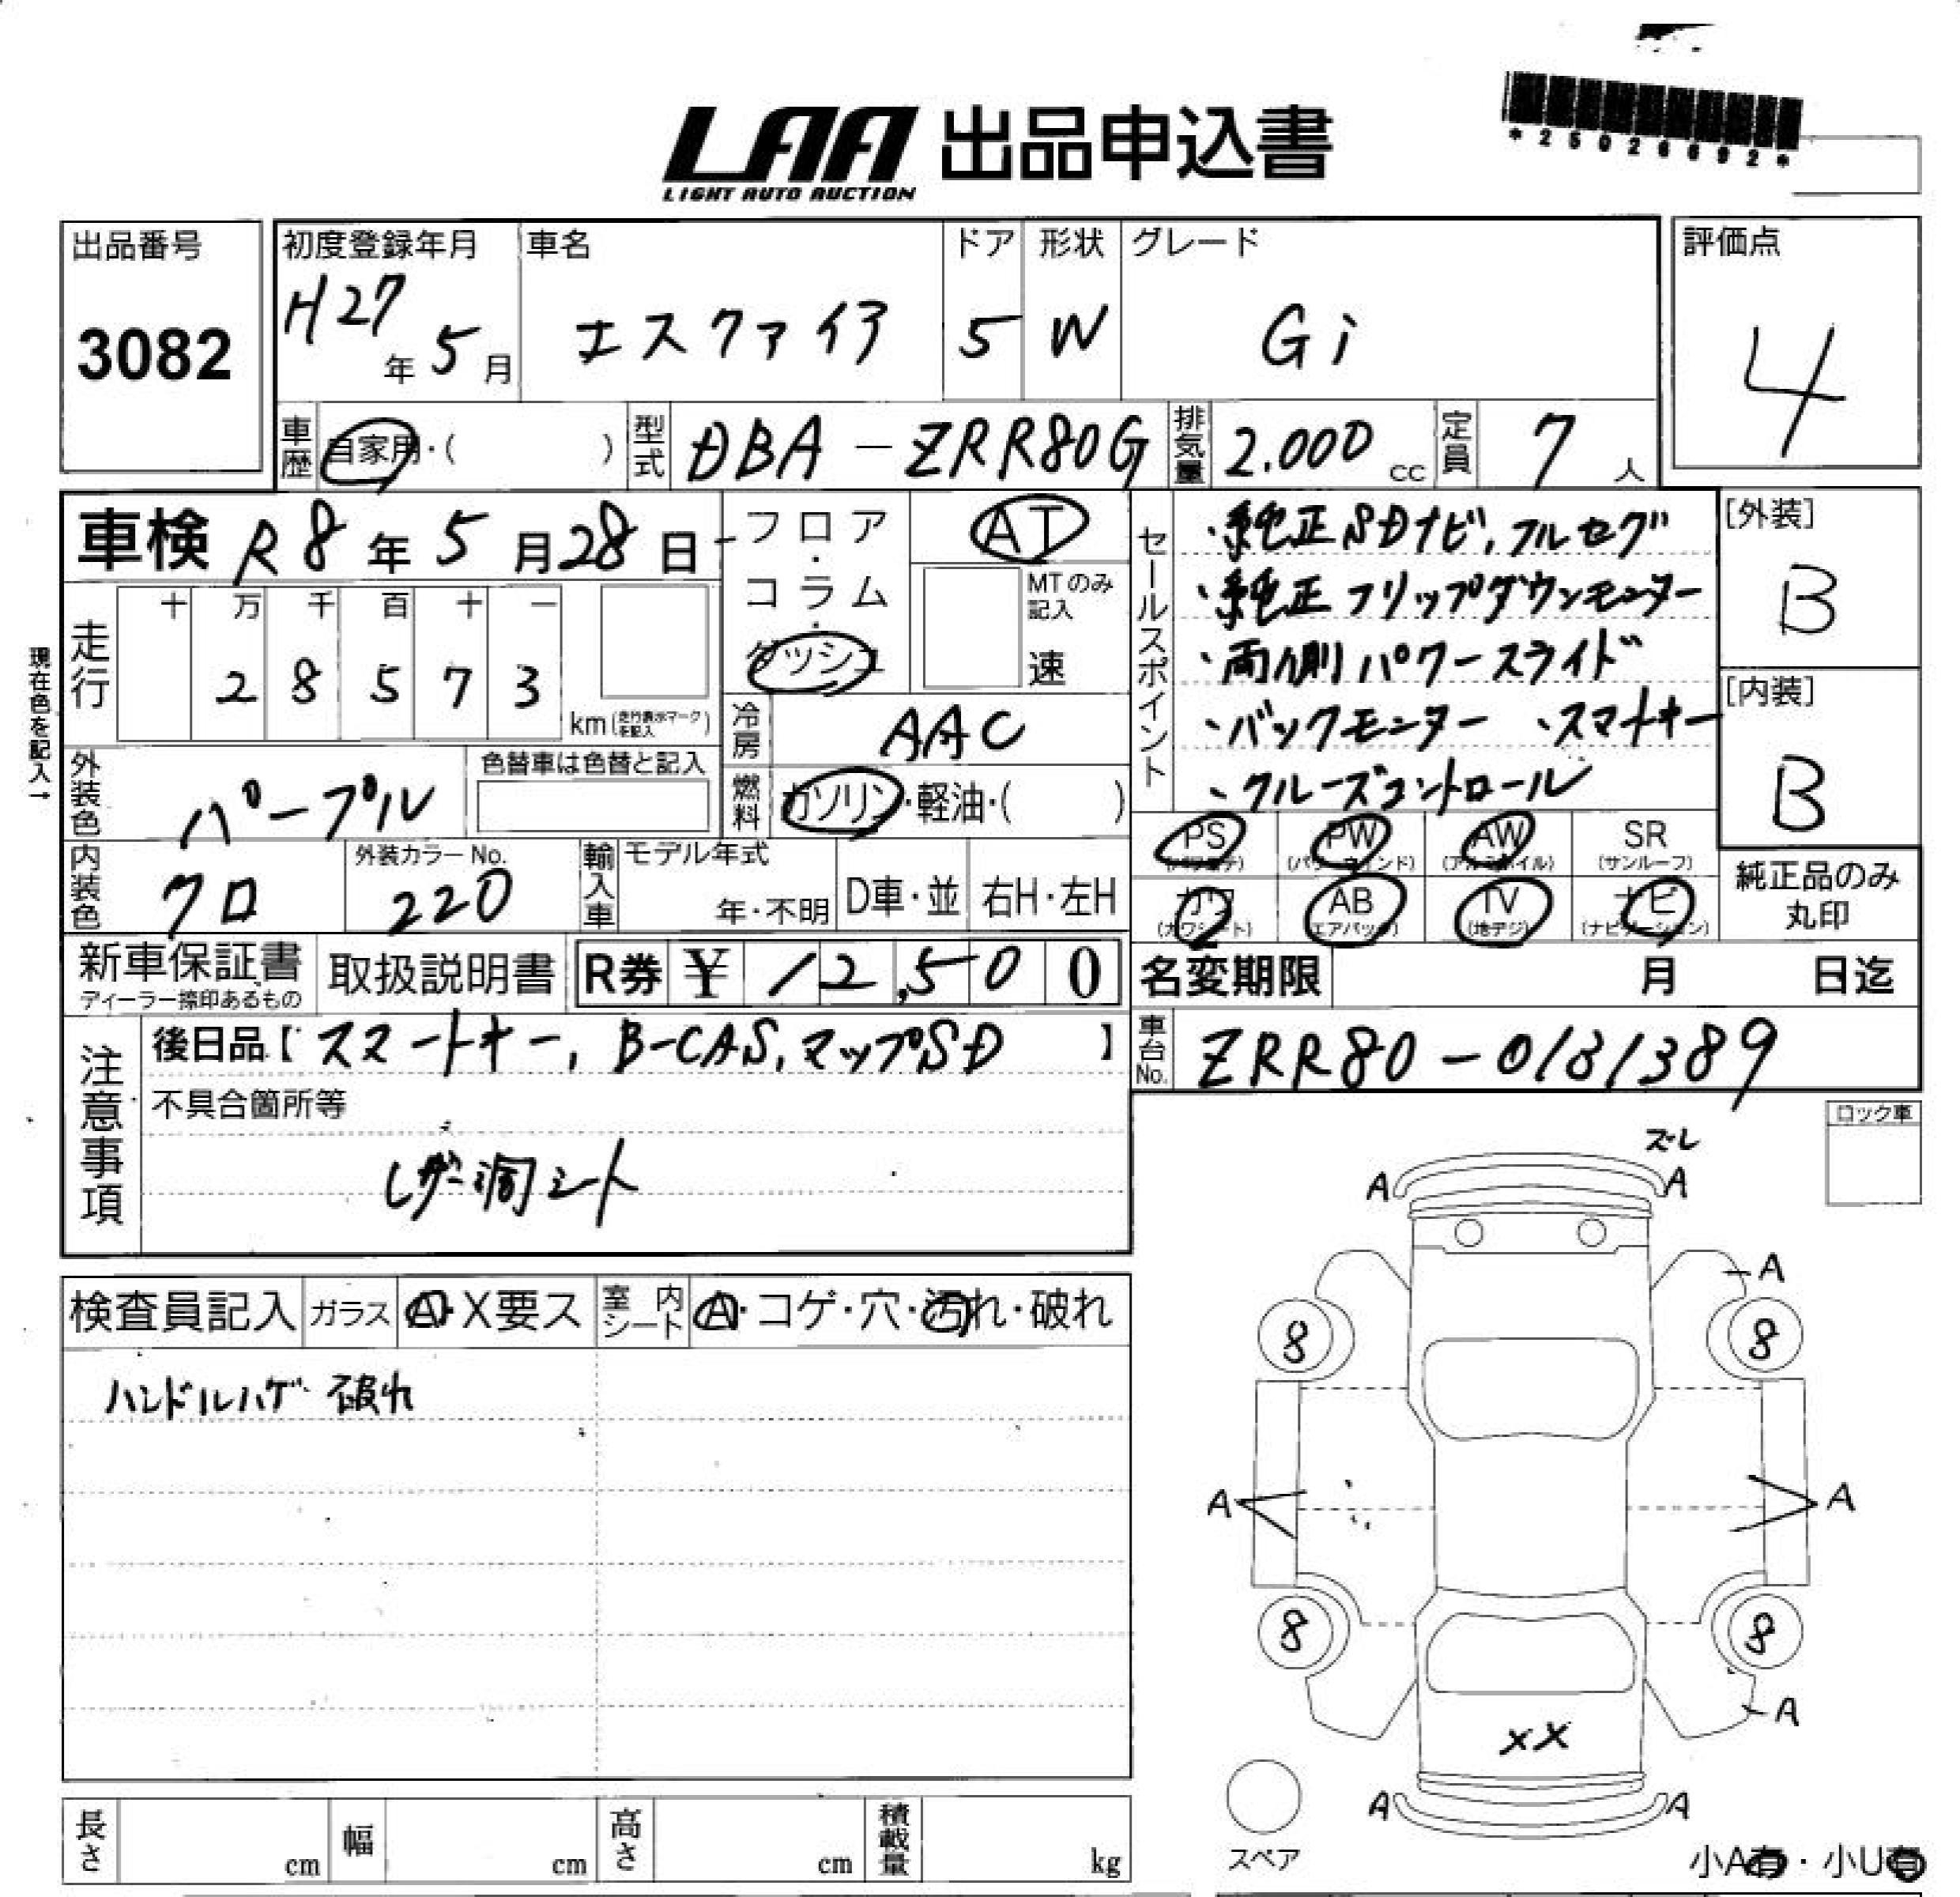 *25026692*
LAA 出品申込書
LIGHT AUTO AUCTION
出品番号 初度登録年月 車名 ドア 形状 グレード 評価点
3082 H27年5月 エスクァイア 5 W Gi 4
車歴 自家用・( ) 型式 DBA-ZRR80G 排気量 2.000cc 定員 7人
車検 R8年5月28日 フロア・コラム・ダッシュ AT
MTのみ記入 速
セールスポイント
・純正SDナビ,フルセグ
・純正フリップダウンモニター
・両側パワースライド
・バックモニター ・スマートキー
・クルーズコントロール
[外装]
B
[内装]
B
現在色を記入→
走行 十 万 千 百 十 一
2 8 5 7 3
km(走行表示マークを記入)
冷房 AAC
外装色 パープル 色替車は色替と記入
燃料 ガソリン・軽油・( )
PS (パワステ) PW (パワーウインド) AW (アルミホイル) SR (サンルーフ)
カワ (カワシート) AB (エアバック) TV (地デジ) ナビ (ナビゲーション)
純正品のみ丸印
内装色 クロ 外装カラーNo. 220 輸入車 モデル年式 年・不明 D車・並 右H・左H
新車保証書 ディーラー捺印あるもの 取扱説明書 R券 ¥ 12,500 名変期限 月 日迄
注意事項
後日品【スマートキー, B-CAS, マップSD】
車台No. ZRR80-0181389
不具合箇所等
レザー調シート
ロック車
ズレ
A A
A
8 8
A A
8 8
A
XX
A A
スペア
小A有・小U有
検査員記入 ガラス A・X要ス 室内シート A・コゲ・穴・汚れ・破れ
ハンドルハゲ 破れ
長さ cm 幅 cm 高さ cm 積載量 kg